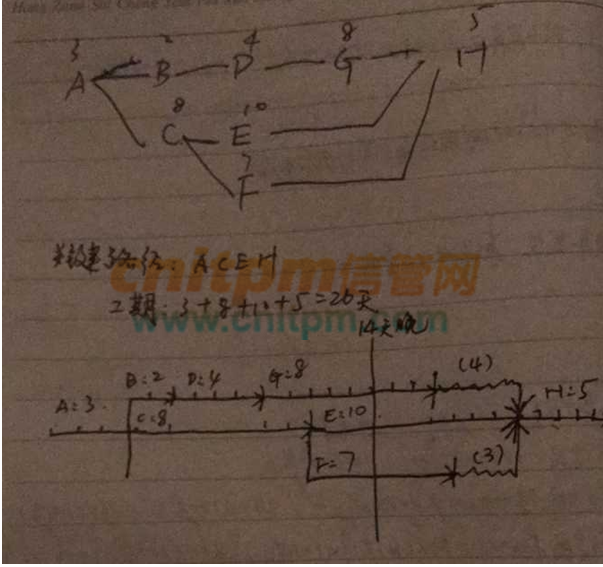 5
3 2 4 8
A B D G H
8 10
C E
7
F
关键路径: A C E H
工期: 3+8+10+5=26天
cnitpm信管网
www.cnitpm.com
14天晚
B=2 D=4 G=8 (4)
A=3 C=8 E=10 H=5
F=7 (3)